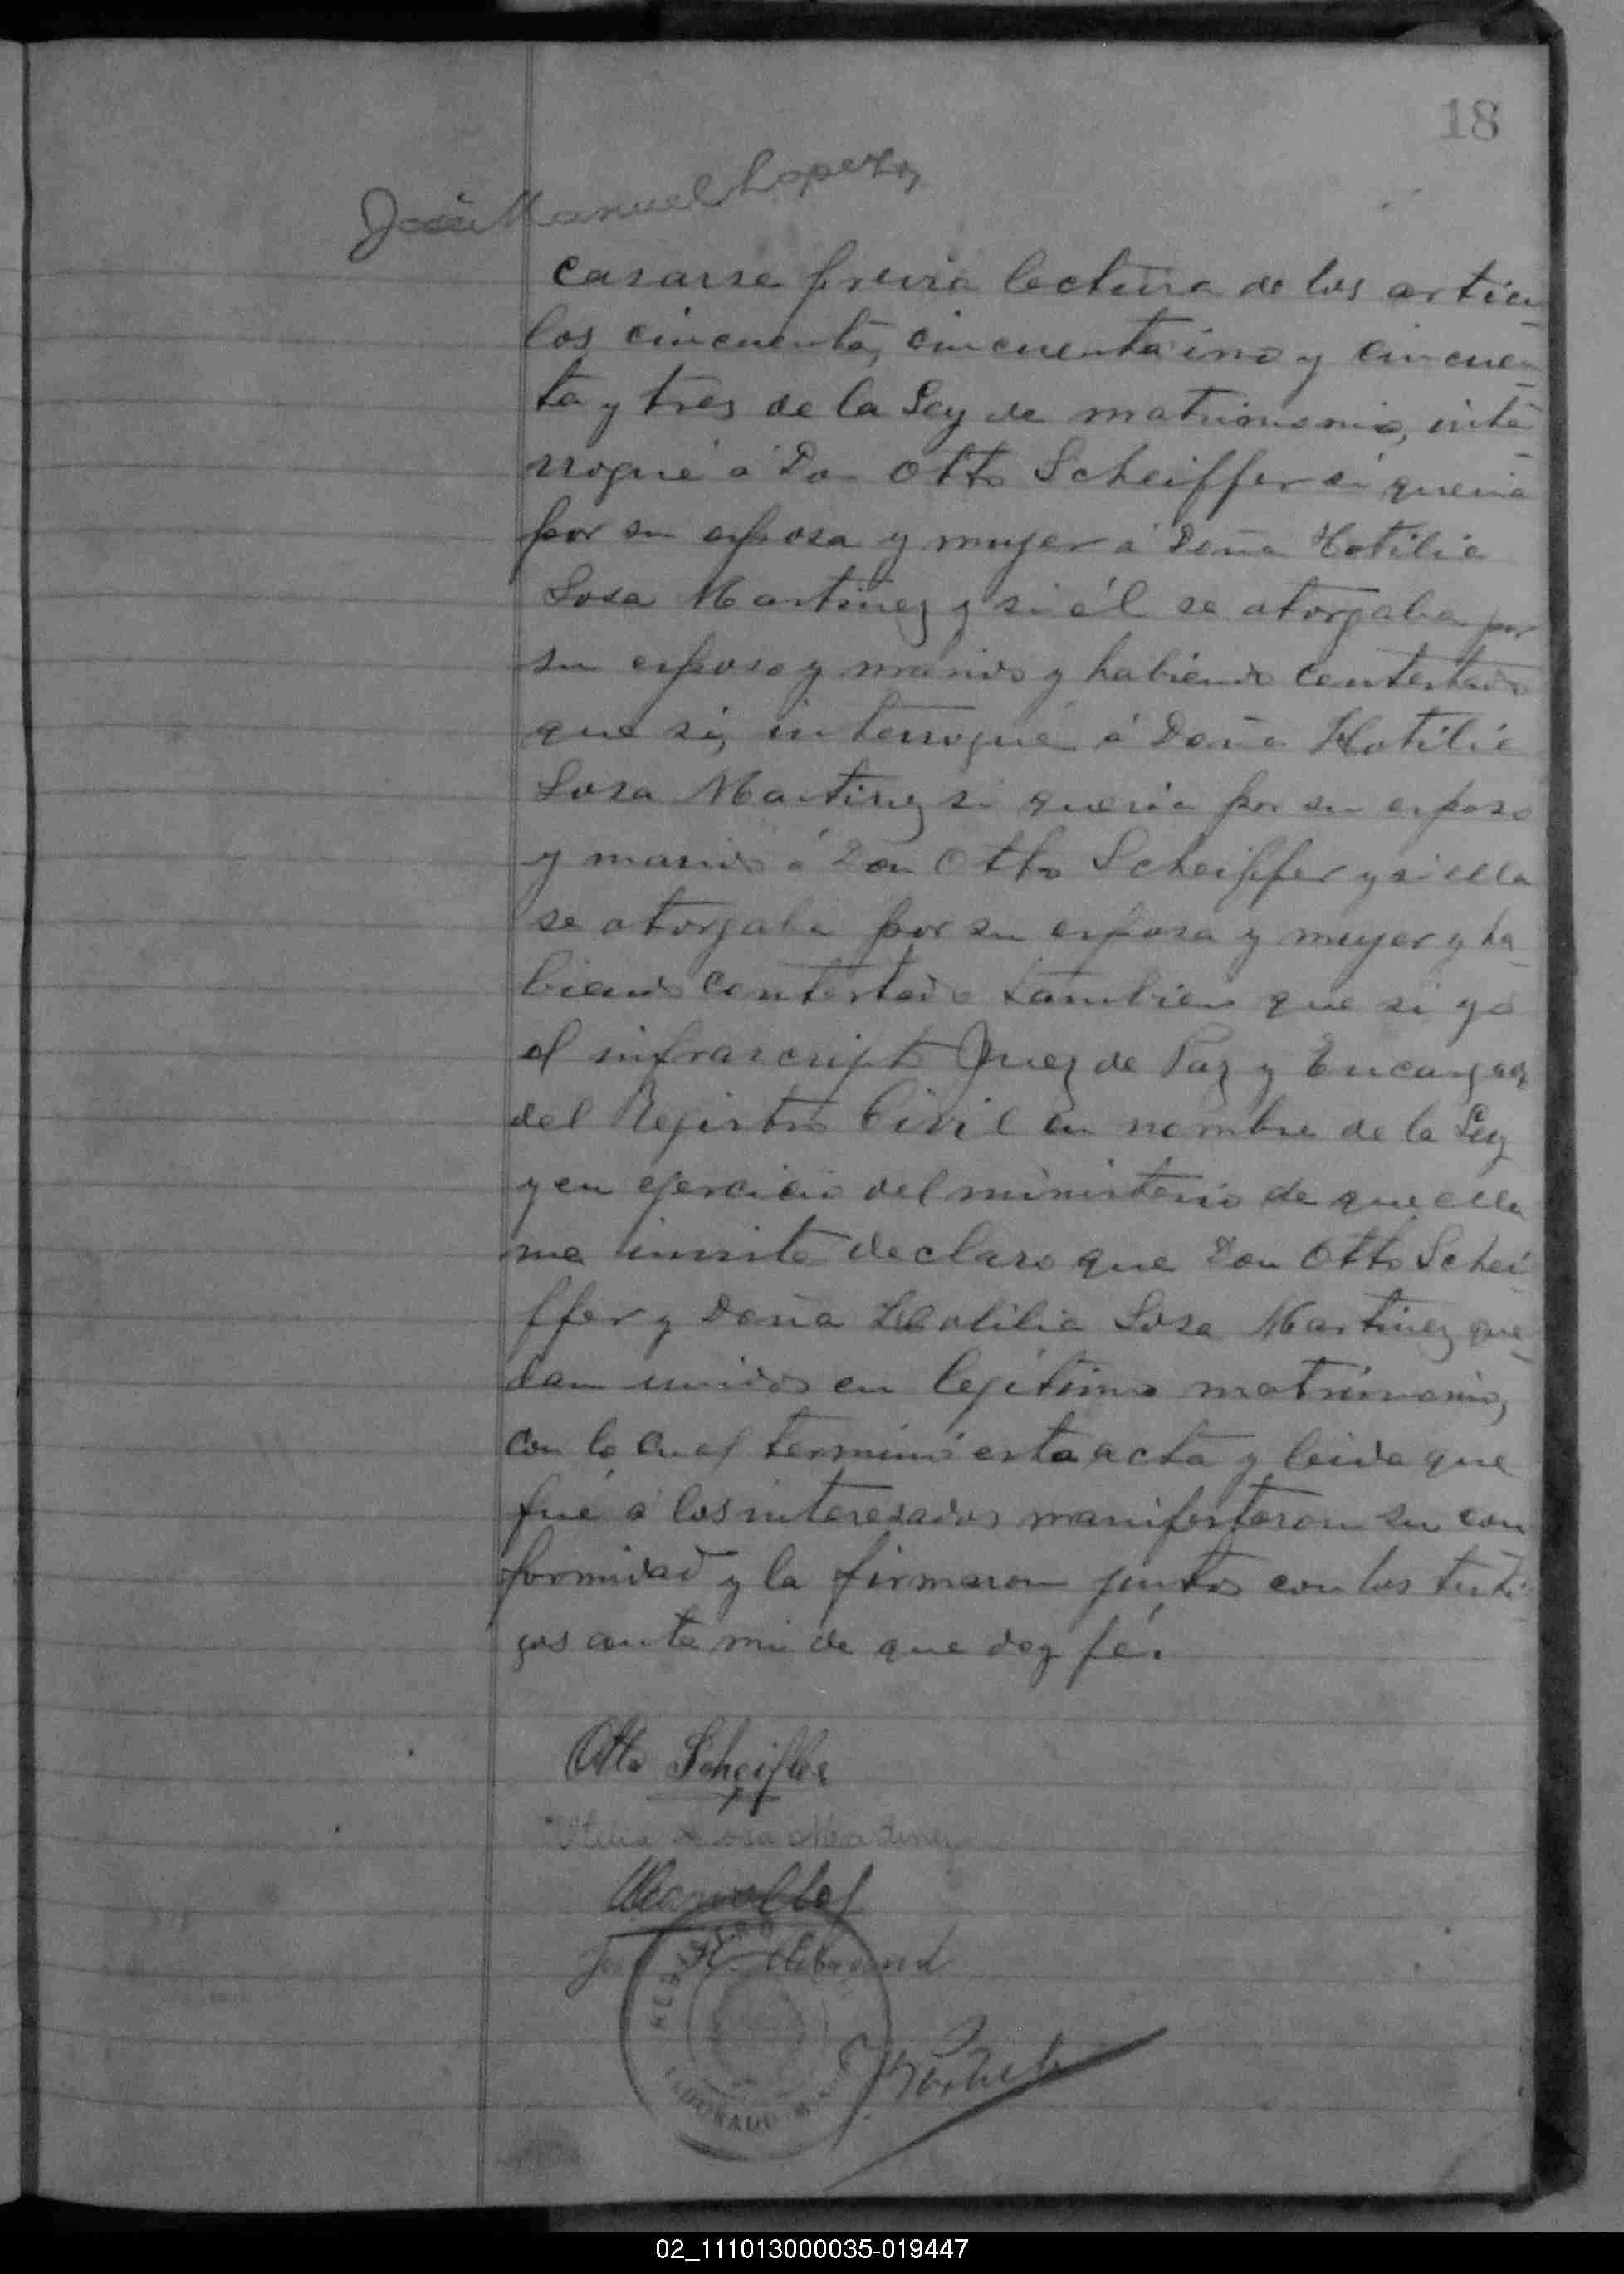 18
José Manuel Lopez
casarse previa lectura de los articu
los cincuenta, cincuenta i uno y cincuen
ta y tres de la Ley de matrimonio, inte
rrogué á Don Otto Scheiffer si queria
por su esposa y mujer á Doña Hotilia
Sosa Martinez y si él se otorgaba por
su esposo y marido y habiendo contestado
que si, interrogué á Doña Hotilia
Sosa Martinez si queria por su esposo
y marido á Don Otto Scheiffer y si ella
se otorgaba por su esposa y mujer y ha
biendo contestado tambien que si yo
el infrascripto Juez de Paz y Encargado
del Registro Civil en nombre de la Ley
y en ejercicio del ministerio de que ella
me inviste declaro que Don Otto Schei
ffer y Doña Hotilia Sosa Martinez que
dan unidos en legitimo matrimonio,
con lo cual terminó esta acta y leida que
fué á los interesados manifestaron su con
formidad y la firmaron juntos con los testi
gos ante mi de que doy fé.
Otto Scheifler
Sosa Martinez
ELDORADO
02_111013000035-019447